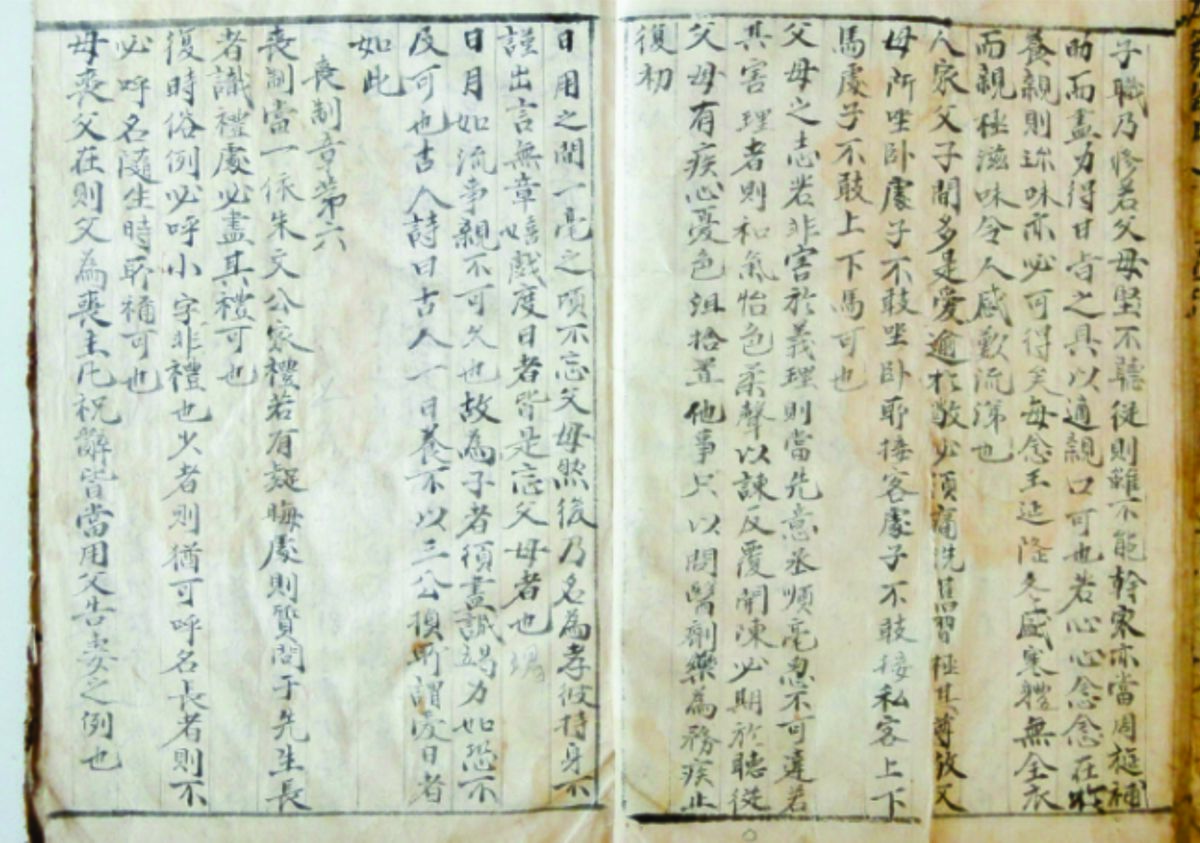 子職乃修若父母堅不聽從則雖不能幹家亦當周旋補
助而盡力得甘旨之具以適親口可也若心心念念在於
養親則珎味亦必可得矣每念王延隆冬盛寒體無全衣
而親極滋味令人感歎流涕也
人家父子間多是愛逾於敬必須痛洗舊習極其尊敬父
母所坐卧處子不敢坐卧所接客處子不敢接私客上下
馬處子不敢上下馬可也
父母之志若非害於義理則當先意丞順毫忽不可違若
其害理者則和氣怡色柔聲以諫反覆開陳必期於聽從
父母有疾心憂色沮拾置他事只以問醫劑藥為務疾止
復初
日用之間一毫之頃不忘父母然後乃名為孝彼持身不
謹出言無章嬉戲度日者皆是忘父母者也
日月如流事親不可久也故為子者須盡誠竭力如恐不
及可也古人詩曰古人一日養不以三公換所謂愛日者
如此
喪制章第六
喪制當一依朱文公家禮若有疑晦處則質問于先生長
者識禮處必盡其禮可也
復時俗例必呼小字非禮也少者則猶可呼名長者則不
必呼名隨生時所稱可也
母喪父在則父為喪主凡祝辭皆當用父告妻之例也